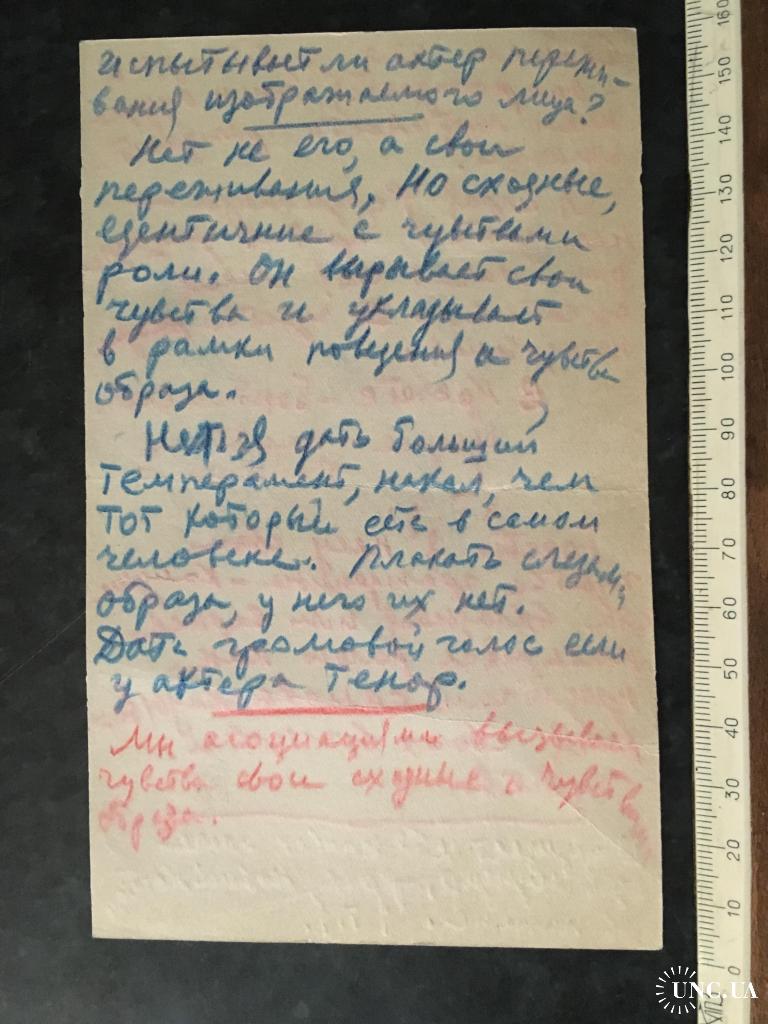 Испытывает ли актер пережи-
вания изображаемого лица?
Нет не его, а свои
переживания, но сходные,
едентичные с чувствами
роли. Он вырывает свои
чувства и укладывает
в рамки поведения и чувства
образа.
Нельзя дать больший
темперамент, накал, чем
тот который есть в самом
человеке. Плакать слезами
образа, у него их нет.
Дать громовой голос если
у актера тенор.
Мы асоциациями вызываем
чувства свои сходные с чувствами
образа.
160
150
140
130
120
110
100
90
80
70
60
50
40
30
20
10
0
UNC.UA